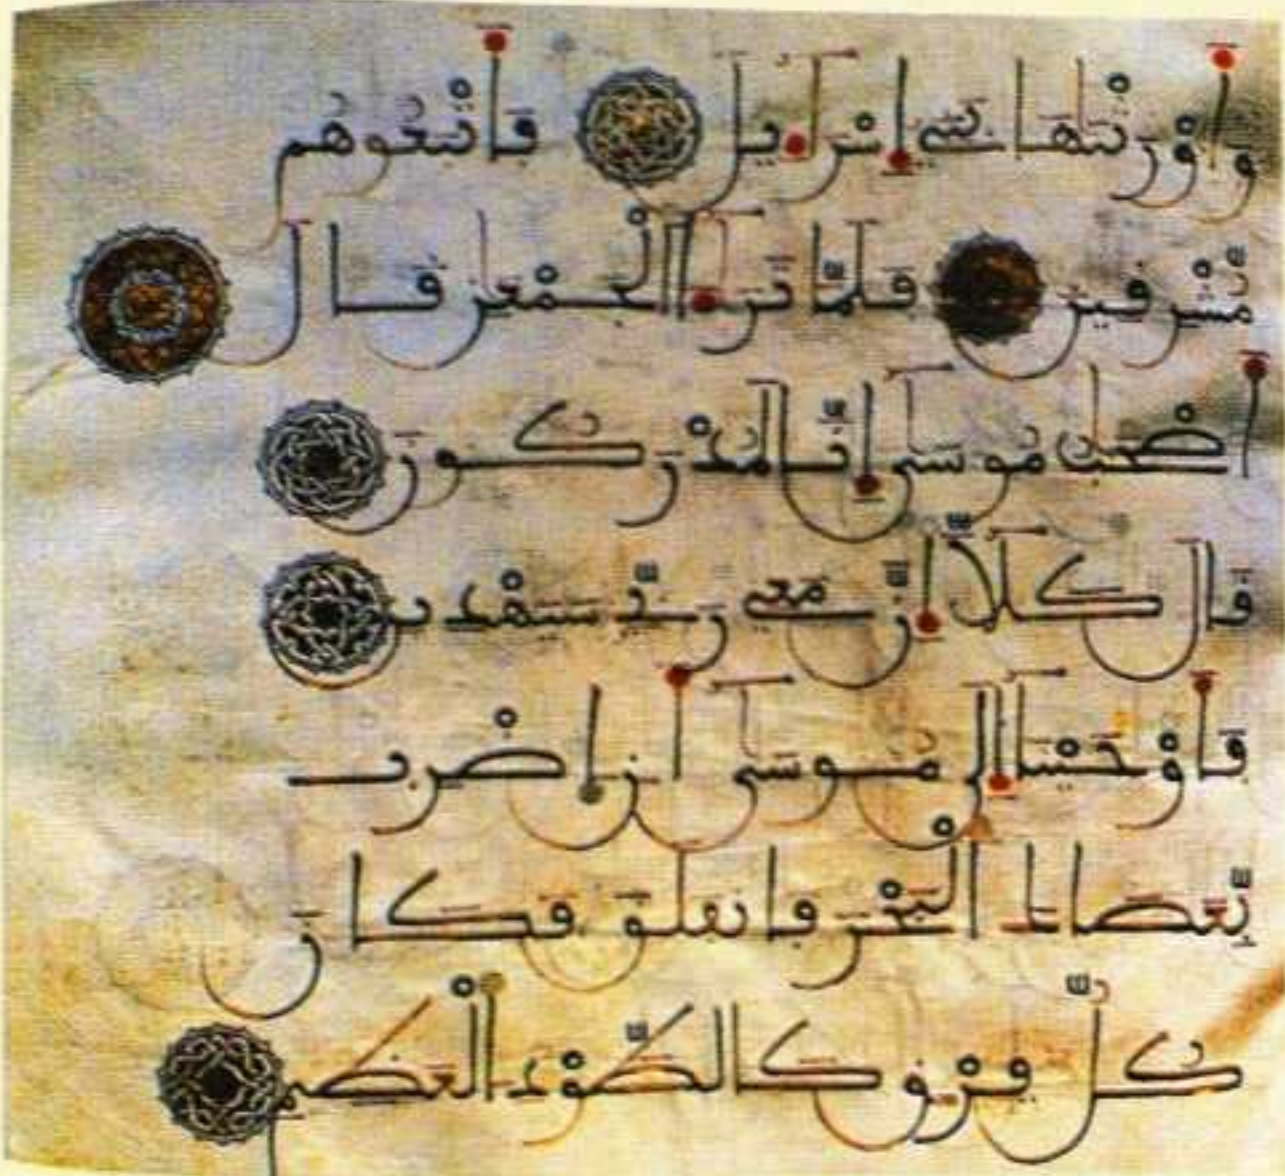 وَأَوْرَثْنَٰهَا بَنِي إِسْرَٰءِيلَ فَأَتْبَعُوهُم
مُّشْرِقِينَ فَلَمَّا تَرَٰءَا الْجَمْعَٰنِ قَالَ
أَصْحَٰبُ مُوسَىٰ إِنَّا لَمُدْرَكُونَ
قَالَ كَلَّا إِنَّ مَعِي رَبِّي سَيَهْدِينِ
فَأَوْحَيْنَا إِلَىٰ مُوسَىٰ أَنِ اضْرِب
بِّعَصَاكَ الْبَحْرَ فَانفَلَقَ فَكَانَ
كُلُّ فِرْقٍ كَالطَّوْدِ الْعَظِيمِ